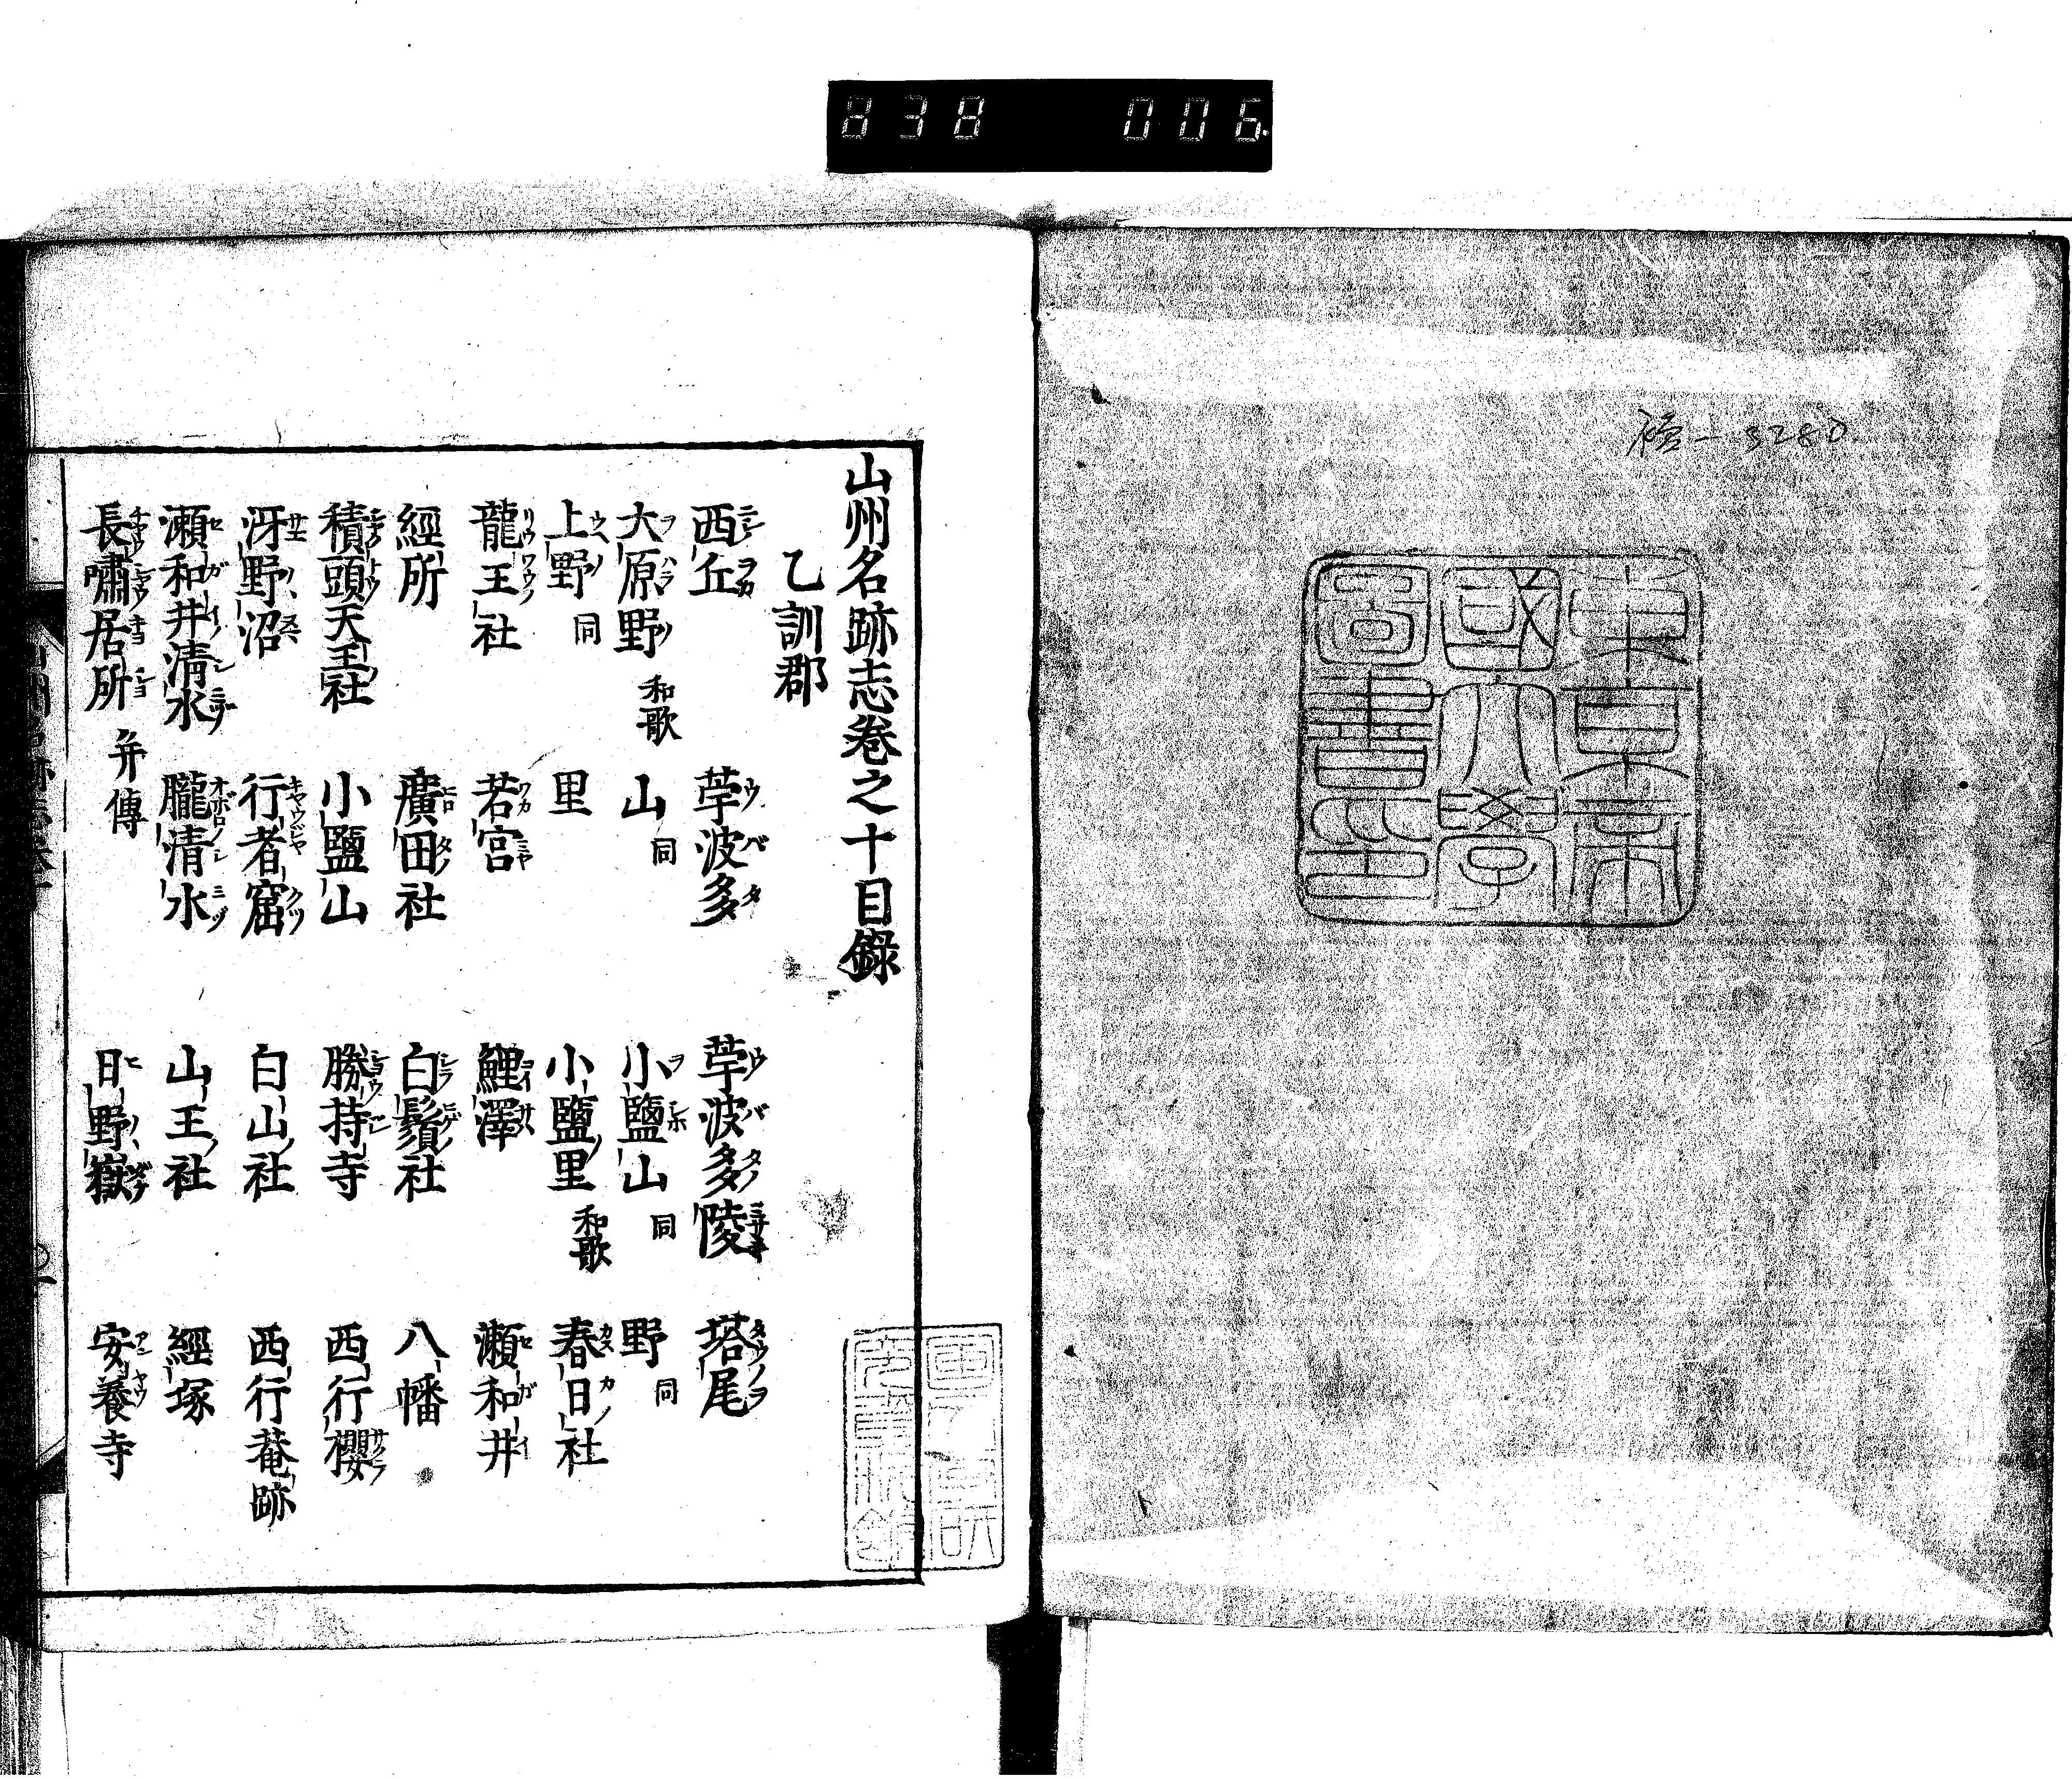 838 006
3280
東京帝國大學圖書印
山州名跡志卷之十目錄
乙訓郡
西丘 莩波多 莩波多陵 塔尾
大原野 和歌 山 同 小鹽山 同 野 同
上野 同 里 小鹽里 和歌 春日社
龍王社 若宮 鯉澤 瀬和井
經所 廣田社 白鬚社 八幡
積頭天王社 小鹽山 勝持寺 西行櫻
冴野沼 行者窟 白山社 西行菴跡
瀬和井清水 朧清水 山王社 經塚
長嘯居所 并傳 日野嶽 安養寺